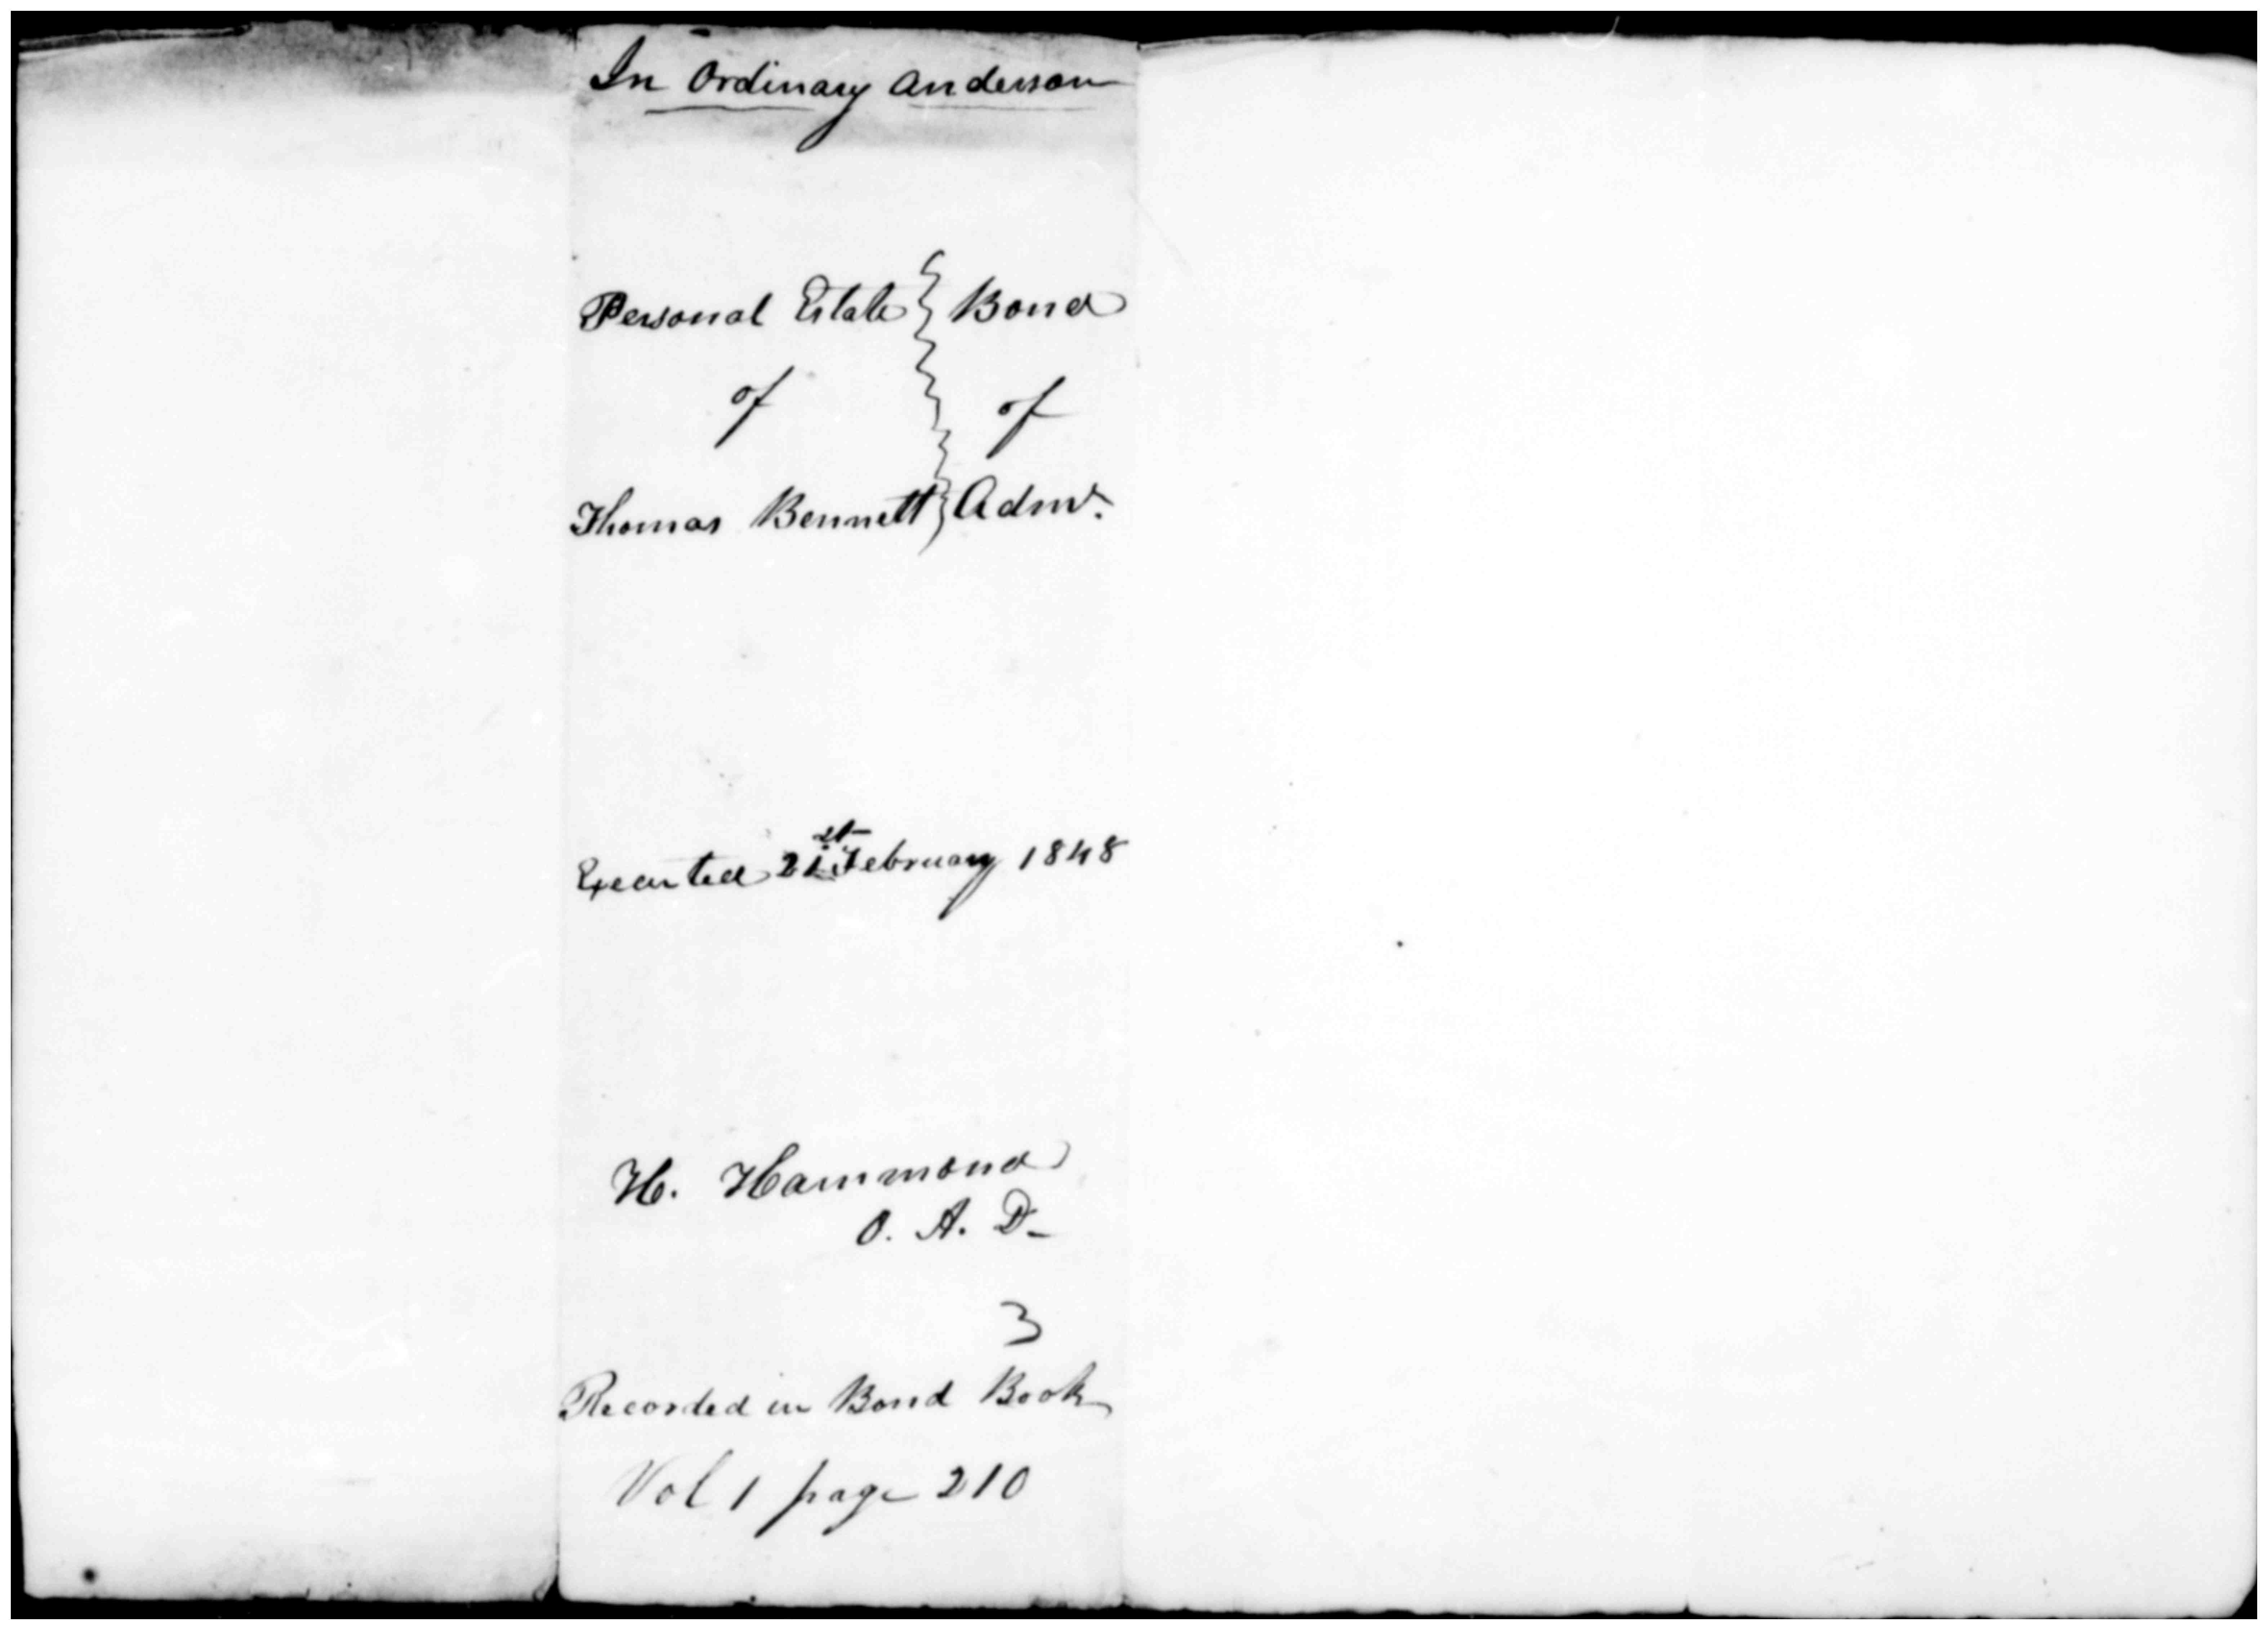 In Ordinary Anderson
Personal Estate } Bond
of } of
Thomas Bennett } Admr.
Executed 21st February 1848
H. Hammond
O. A. D.
3
Recorded in Bond Book
Vol 1 page 210